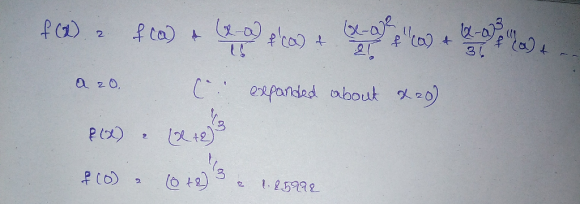 f(x) = f(a) + (x-a)/1! f'(a) + (x-a)²/2! f''(a) + (x-a)³/3! f'''(a) + ...
a = 0. (∵ expanded about x=0)
f(x) = (x+2)^1/3
f(0) = (0+2)^1/3 = 1.25992